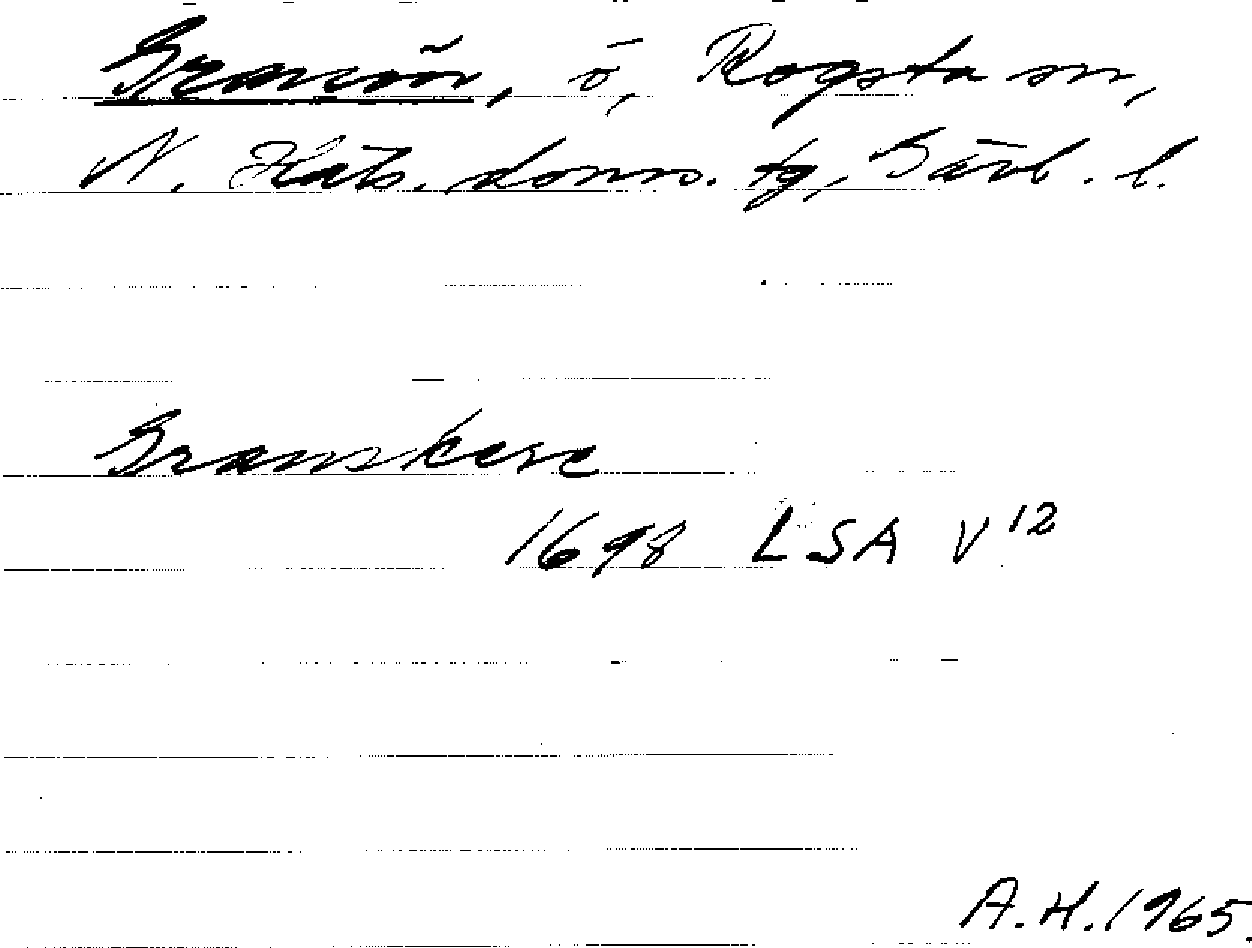 Gransön, ö, Rogsta sn,
N. Häls. doms. tg, Gävl. l.
Granskere
1698 LSA V 12
A.H. 1965.